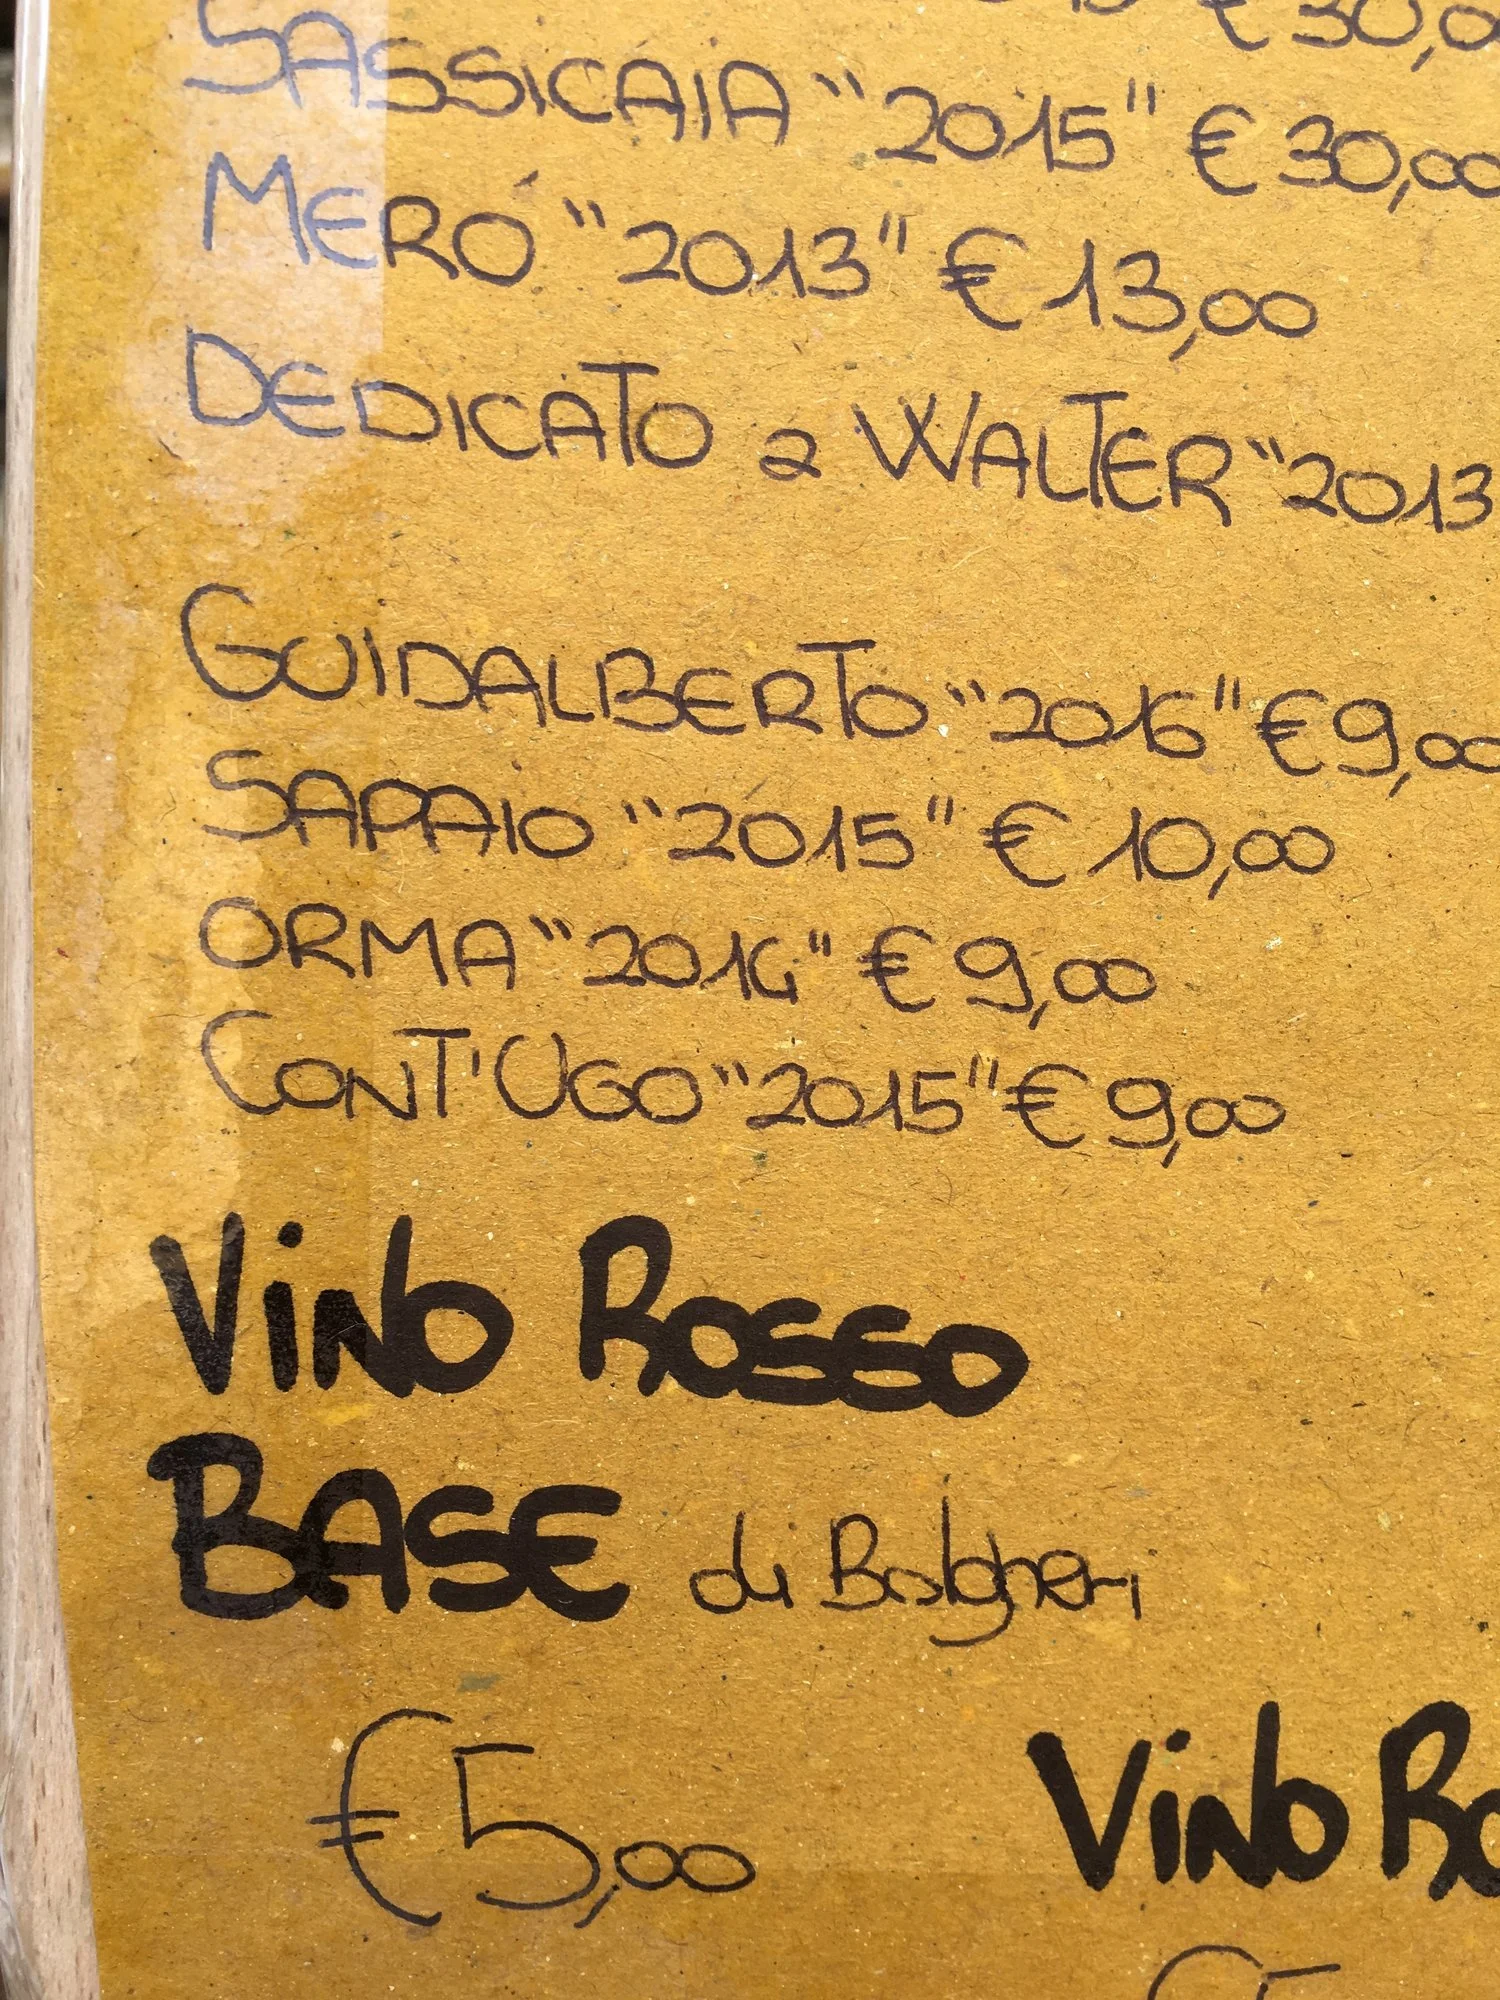 € 30,0
SASSICAIA "2015" € 30,00
MERÓ "2013" € 13,00
DEDICATO a WALTER "2013
GUIDALBERTO "2016" € 9,00
SAPAIO "2015" € 10,00
ORMA "2014" € 9,00
CONT'UGO "2015" € 9,00
VINO ROSSO
BASE di Bolgheri
€ 5,00
VINO RO